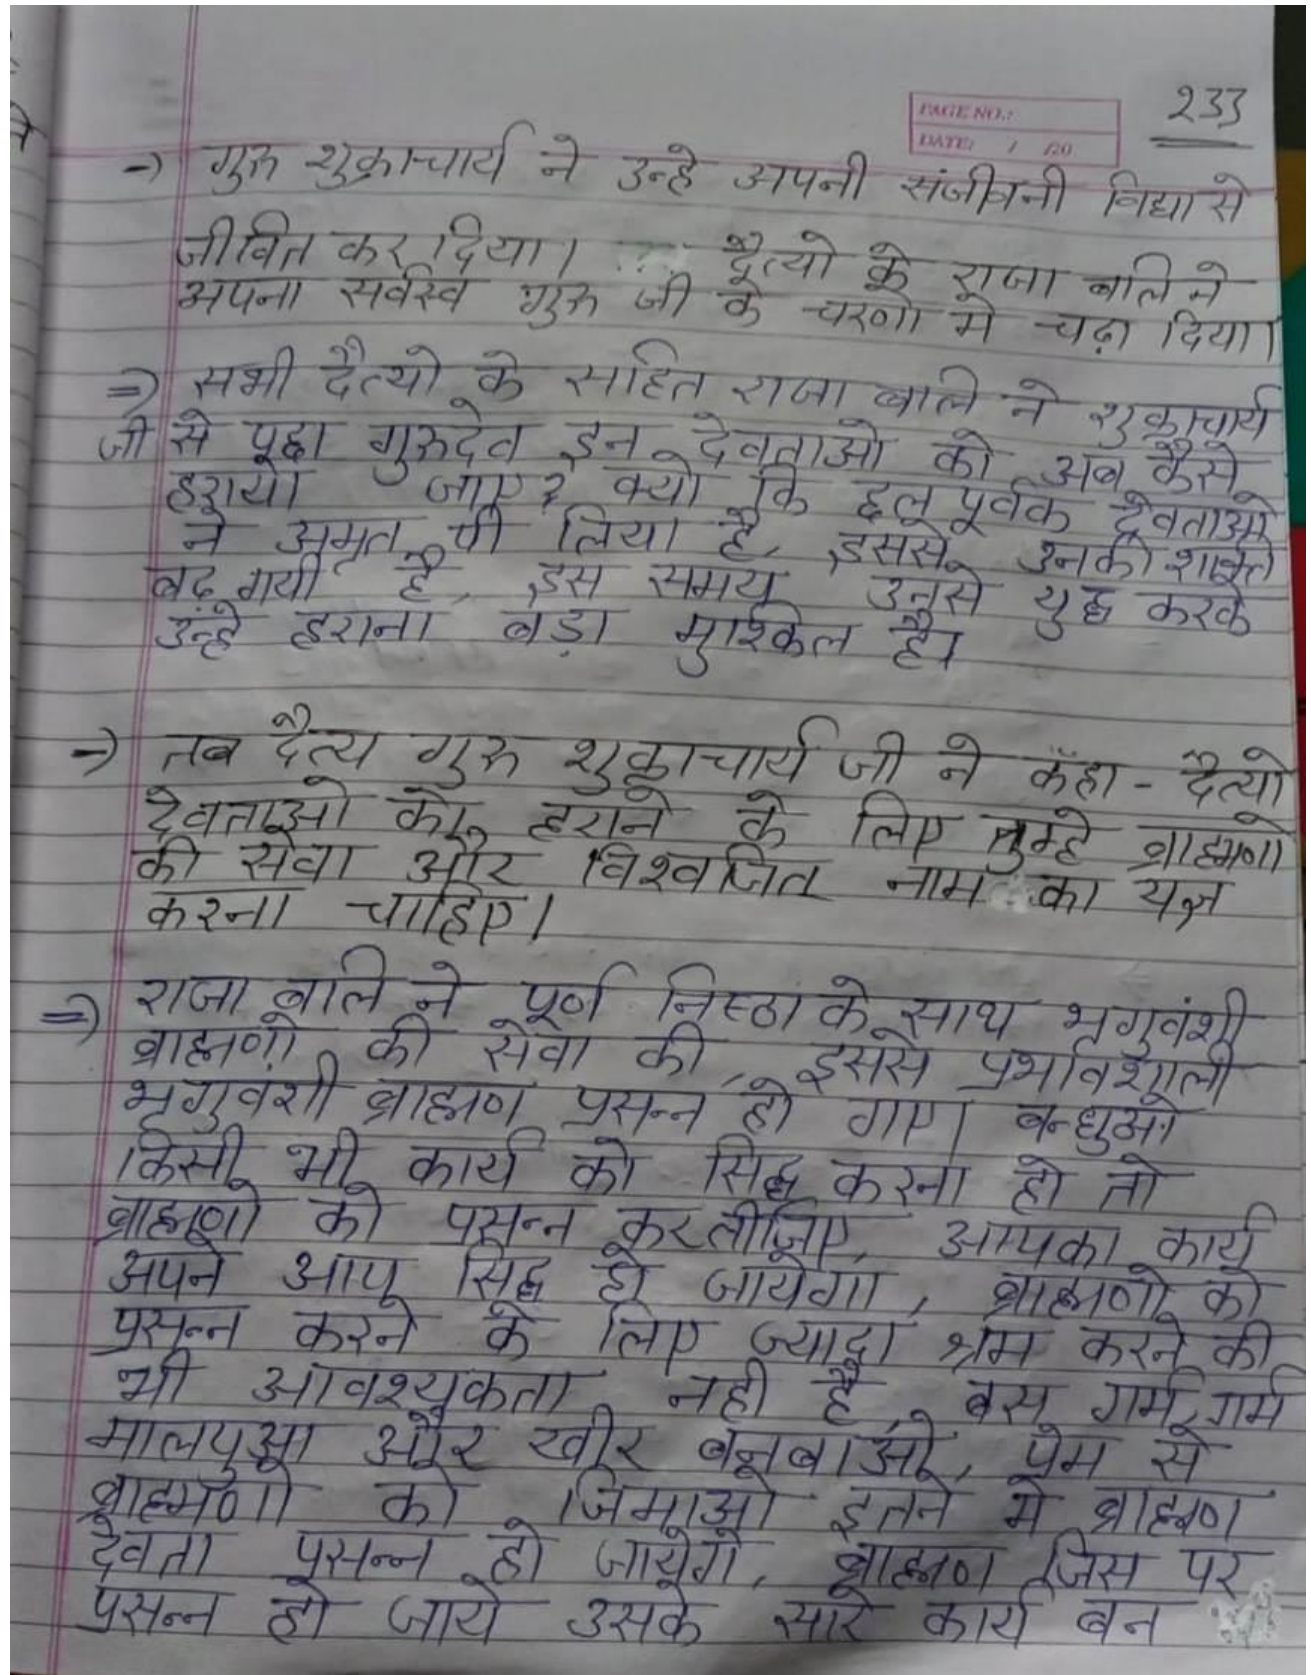 PAGE NO.:
DATE: / /20
233
-) गुरु शुक्राचार्य ने उन्हे अपनी संजीवनी विद्या से
जीवित कर दिया। दैत्यो के राजा बलि ने
अपना सर्वस्व गुरु जी के चरणो मे चढ़ा दिया।
=) सभी दैत्यो के सहित राजा बलि ने शुक्राचार्य
जी से पूछा गुरुदेव इन देवताओ को अब कैसे
हराया जाए? क्यो कि छल पूर्वक देवताओ
ने अमृत पी लिया है, इससे उनकी शक्ति
बढ़ गयी है, इस समय उनसे युद्ध करके
उन्हे हराना बड़ा मुश्किल है।
-) तब दैत्य गुरु शुक्राचार्य जी ने कँहा - दैत्यो
देवताओ को हराने के लिए तुम्हे ब्राह्मणो
की सेवा और विश्वजित नाम का यज्ञ
करना चाहिए।
=) राजा बलि ने पूर्ण निस्ठा के साथ भृगुवंशी
ब्राह्मणो की सेवा की, इससे प्रभावशाली
भृगुवंशी ब्राह्मण प्रसन्न हो गए। बन्धुओ
किसी भी कार्य को सिद्ध करना हो तो
ब्राह्मणो को प्रसन्न कर लीजिए, आपका कार्य
अपने आप सिद्ध हो जायेगा, ब्राह्मणो को
प्रसन्न करने के लिए ज्यादा श्रम करने की
भी आवश्यकता नही है, बस गर्म गर्म
मालपुआ और खीर बनबाओ, प्रेम से
ब्राह्मणो को जिमाओ इतने मे ब्राह्मण
देवता प्रसन्न हो जायेगे, ब्राह्मण जिस पर
प्रसन्न हो जाये उसके सारे कार्य बन